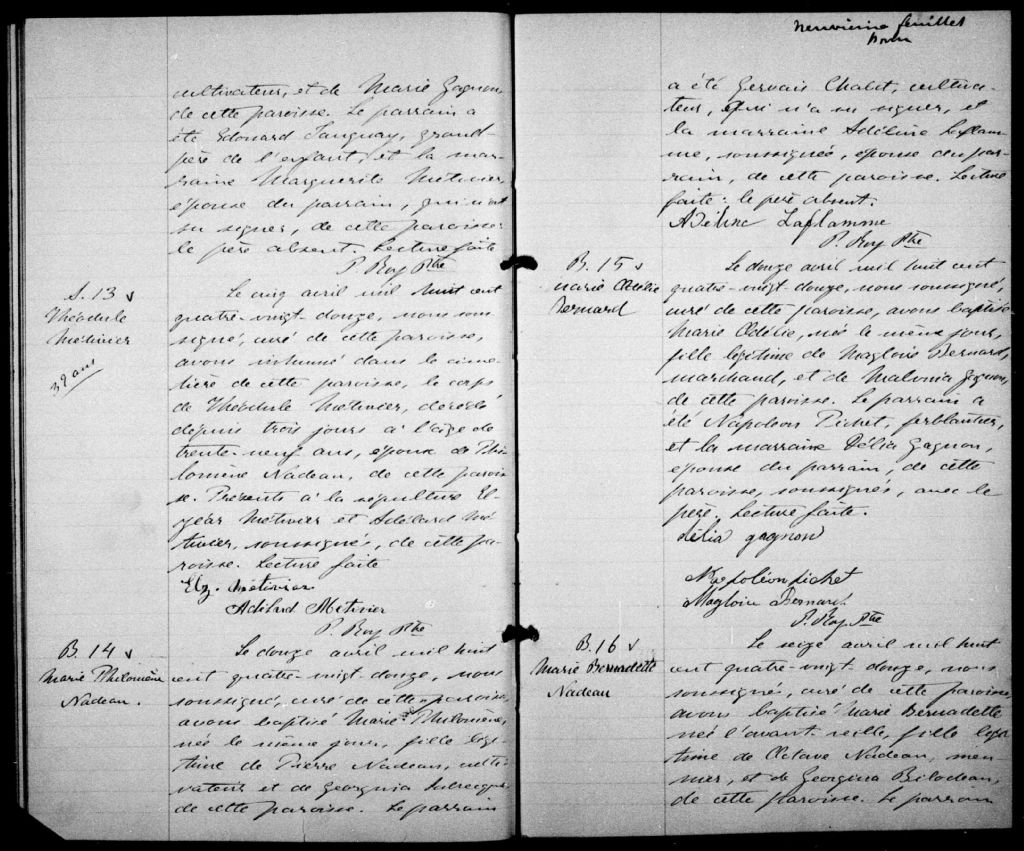 cultivateur, et de Marie Gagnon,
de cette paroisse. Le parrain a
été Edouard Tanguay, grand-
père de l'enfant, et la mar-
raine Marguerite Métivier,
épouse du parrain, qui n'ont
su signer, de cette paroisse:
le père absent. Lecture faite
P. Roy Ptre
S. 13
Théodule
Métivier
39 ans
Le cinq avril mil huit cent
quatre-vingt douze, nous sous
signé, curé de cette paroisse,
avons inhumé dans le cime-
tière de cette paroisse, le corps
de Théodule Métivier, décédé
depuis trois jours à l'âge de
trente-neuf ans, époux de Phi-
lomène Nadeau, de cette parois-
se. Présents à la sépulture El
zéar Métivier et Adélard Mé
tivier, soussignés, de cette pa-
roisse. Lecture faite
Elz. Métivier
Adélard Métivier
P. Roy Ptre
B. 14
Marie Philomène
Nadeau.
Le douze avril mil huit
cent quatre-vingt douze, nous
soussigné, curé de cette paroisse,
avons baptisé Marie Philomène,
née le même jour, fille légi-
time de Pierre Nadeau, culti-
vateur et de Georginia
de cette paroisse. Le parrain
neuvième feuillet
a été Gervais Chabot, cultiva-
teur, qui n'a su signer, et
la marraine Adéline Laflam-
me, soussignée, épouse du par-
rain, de cette paroisse. Lecture
faite: le père absent.
Adéline Laflamme
P. Roy Ptre
B. 15
Marie Adélie
Bernard
Le douze avril mil huit cent
quatre-vingt-douze, nous soussigné,
curé de cette paroisse, avons baptisé
Marie Adélie, née le même jour,
fille légitime de Magloire Bernard,
marchand, et de Malonia Gagnon,
de cette paroisse. Le parrain a
été Napoléon Pichet, ferblantier,
et la marraine Délia Gagnon,
épouse du parrain, de cette
paroisse, soussignés, avec le
père. Lecture faite.
délia gagnon
Napoléon pichet
Magloire Bernard.
P. Roy Ptre
B. 16
Marie Bernadette
Nadeau
Le seize avril mil huit
cent quatre-vingt douze, nous
soussigné, curé de cette paroisse,
avons baptisé Marie Bernadette
née l'avant-veille, fille légi
time de Octave Nadeau, meu
nier, et de Georgina Bilodeau,
de cette paroisse. Le parrain